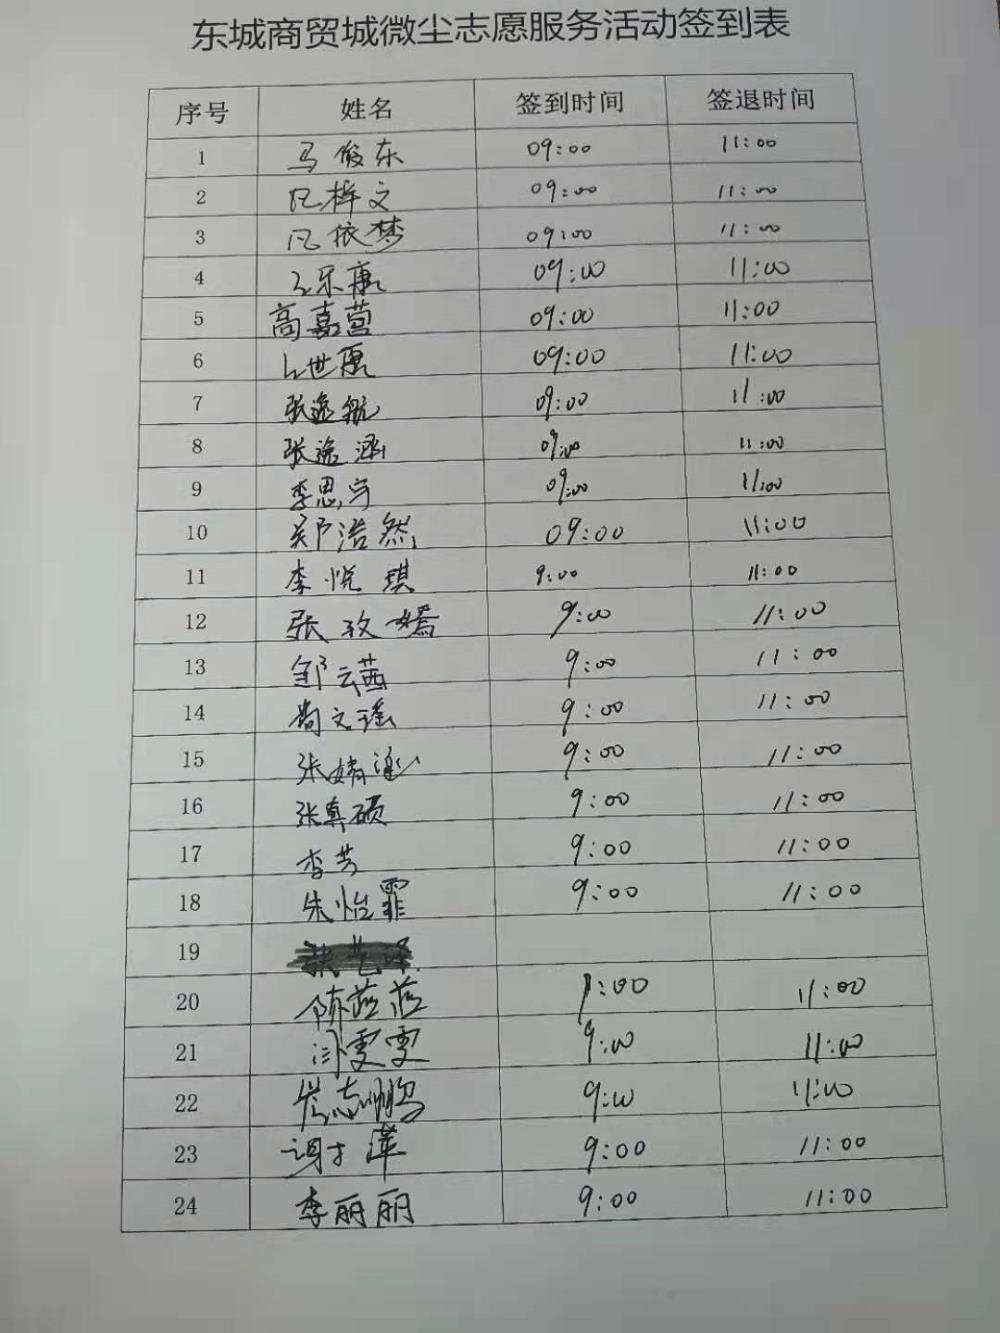 东城商贸城微尘志愿服务活动签到表
序号 姓名 签到时间 签退时间
1 马俊东 09:00 11:00
2 梓文 09:00 11:00
3 凡依梦 09:00 11:00
4 乐康 09:00 11:00
5 高嘉营 09:00 11:00
6 世 09:00 11:00
7 张逸航 09:00 11:00
8 张逸涵 09:00 11:00
9 李思宇 09:00 11:00
10 郑浩然 09:00 11:00
11 李悦琪 9:00 11:00
12 张玫嫣 9:00 11:00
13 邹云茜 9:00 11:00
14 尚文瑶 9:00 11:00
15 张婧 9:00 11:00
16 张真硕 9:00 11:00
17 李芳 9:00 11:00
18 朱怡霏 9:00 11:00
19
20 陈蕊蕊 9:00 11:00
21 雯雯 9:00 11:00
22 崔志鹏 9:00 11:00
23 谢萍 9:00 11:00
24 李丽丽 9:00 11:00